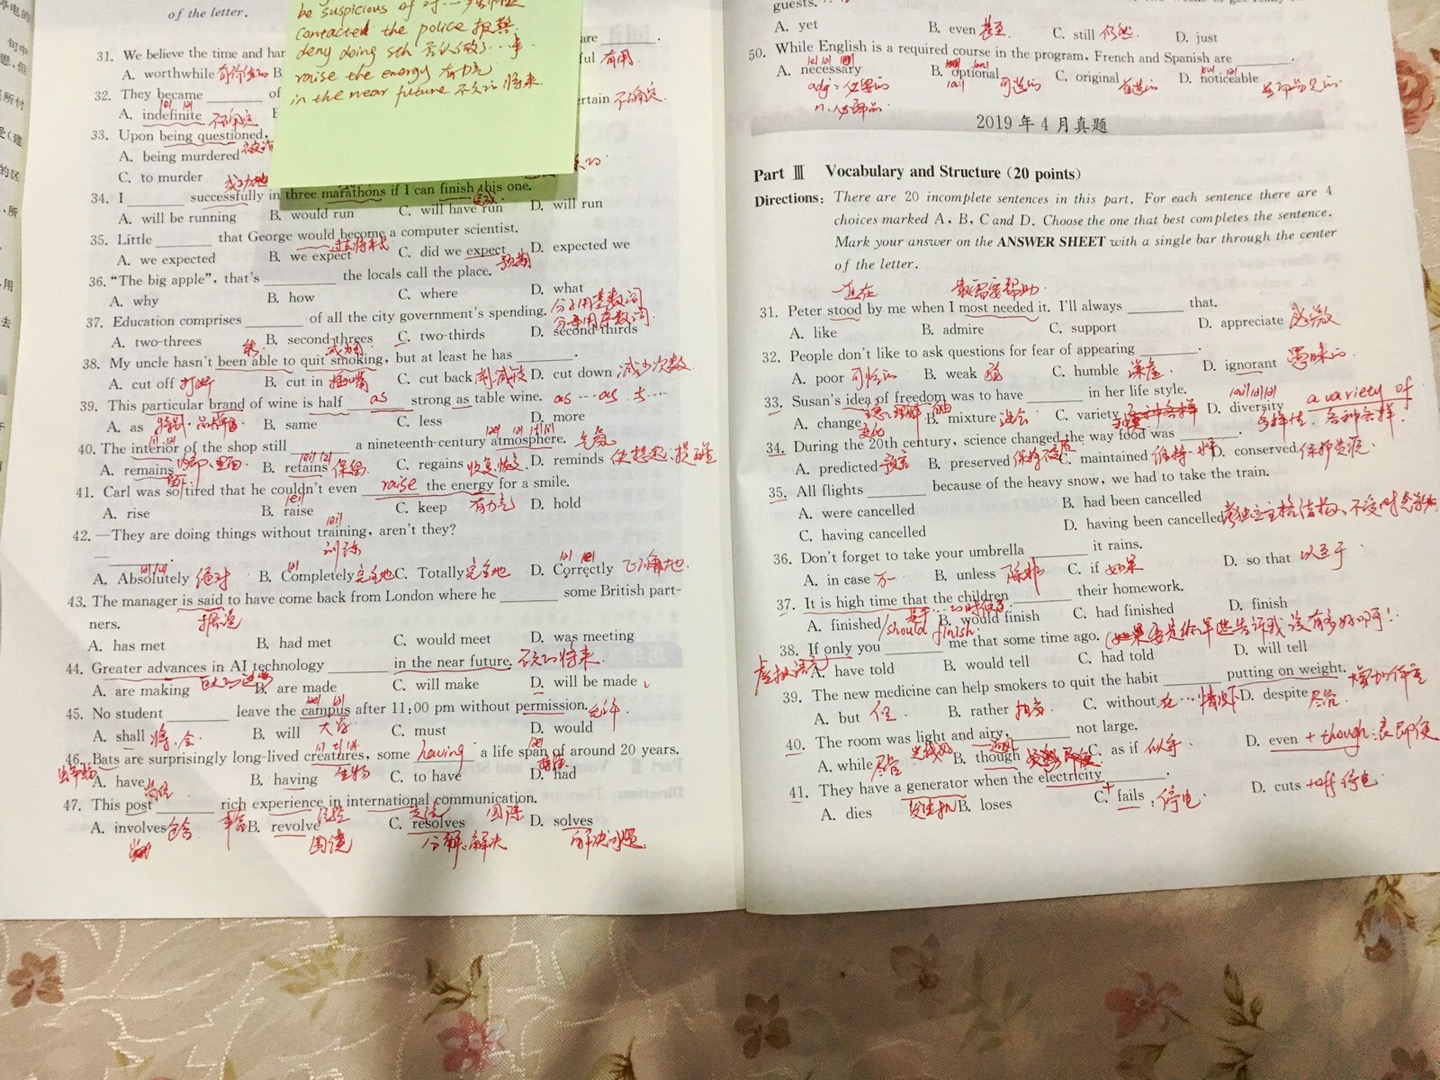 of the letter.
be suspicious of 对…
contacted the police 报警
deny doing sth 否认做了…事
raise the energy 有力气
in the near future 不久的将来.
31. We believe the time and har
are ______.
A. worthwhile
B
ful 有用
32. They became ______ of
A. indefinite 不确定
ertain 不确定.
33. Upon being questioned,
A. being murdered
C. to murder
成功地
34. I ______ successfully in three marathons if I can finish this one.
A. will be running B. would run C. will have run D. will run
35. Little ______ that George would become a computer scientist.
过去将来式
A. we expected B. we expect C. did we expect D. expected we
预期
36. “The big apple”, that's ______ the locals call the place.
A. why B. how C. where D. what
分子用基数词
37. Education comprises ______ of all the city government's spending.
分母用序数词.
A. two-threes B. second-threes C. two-thirds D. second-thirds
38. My uncle hasn't been able to quit smoking, but at least he has ______.
A. cut off 打断 B. cut in 插嘴 C. cut back 削减 D. cut down 减少次数
39. This particular brand of wine is half as strong as table wine. as…as
A. as B. same C. less D. more
特别.品牌
40. The interior of the shop still ______ a nineteenth-century atmosphere. 气氛
内部、里面
A. remains B. retains 保留 C. regains 恢复 D. reminds 使想起、提醒
41. Carl was so tired that he couldn't even raise the energy for a smile.
A. rise B. raise C. keep 有力气 D. hold
42. —They are doing things without training, aren't they?
训练
— ______.
A. Absolutely 绝对 B. Completely 完全地 C. Totally 完全地 D. Correctly 正确地.
43. The manager is said to have come back from London where he ______ some British part-
ners.
据说
A. has met B. had met C. would meet D. was meeting
44. Greater advances in AI technology ______ in the near future. 不久的将来.
A. are making B. are made C. will make D. will be made
45. No student ______ leave the campus after 11:00 pm without permission. 允许.
A. shall 将、会 B. will 大学 C. must D. would
46. Bats are surprisingly long-lived creatures, some having a life span of around 20 years.
A. have B. having 生物 C. to have D. had
47. This post ______ rich experience in international communication.
丰富 经验 交流 国际
A. involves 包含 B. revolve C. resolves D. solves
围绕 分解、解决 解决问题
guests.
A. yet B. even 甚至 C. still 仍然. D. just
50. While English is a required course in the program, French and Spanish are ______.
A. necessary B. optional C. original D. noticeable
adj: 必要的 可选的
n. 必需品
2019 年 4 月真题
Part Ⅲ Vocabulary and Structure (20 points)
Directions: There are 20 incomplete sentences in this part. For each sentence there are 4
choices marked A, B, C and D. Choose the one that best completes the sentence.
Mark your answer on the ANSWER SHEET with a single bar through the center
of the letter.
最需要帮助.
31. Peter stood by me when I most needed it. I'll always ______ that.
A. like B. admire C. support D. appreciate 感激
32. People don't like to ask questions for fear of appearing ______.
A. poor 可怜的 B. weak 弱 C. humble 谦虚 D. ignorant 愚昧的
33. Susan's idea of freedom was to have ______ in her life style.
a variety of
A. change B. mixture 混合 C. variety D. diversity 多样性. 各种各样.
变化
34. During the 20th century, science changed the way food was ______.
A. predicted 预言 B. preserved C. maintained 维持 D. conserved 保护资源
35. All flights ______ because of the heavy snow, we had to take the train.
A. were cancelled B. had been cancelled
C. having cancelled D. having been cancelled
36. Don't forget to take your umbrella ______ it rains.
A. in case 万一 B. unless 除非 C. if 如果 D. so that 以至于
37. It is high time that the children ______ their homework.
A. finished B. would finish C. had finished D. finish
/should finish.
38. If only you ______ me that some time ago.
虚拟语气
A. have told B. would tell C. had told D. will tell
39. The new medicine can help smokers to quit the habit ______ putting on weight.
A. but 但. B. rather C. without 在…情况 D. despite 尽管
40. The room was light and airy, ______ not large.
A. while 尽管 B. though C. as if 似乎 D. even + though: 即使
41. They have a generator when the electricity ______.
A. dies 发电机 B. loses C. fails : 停电 D. cuts +off 停电